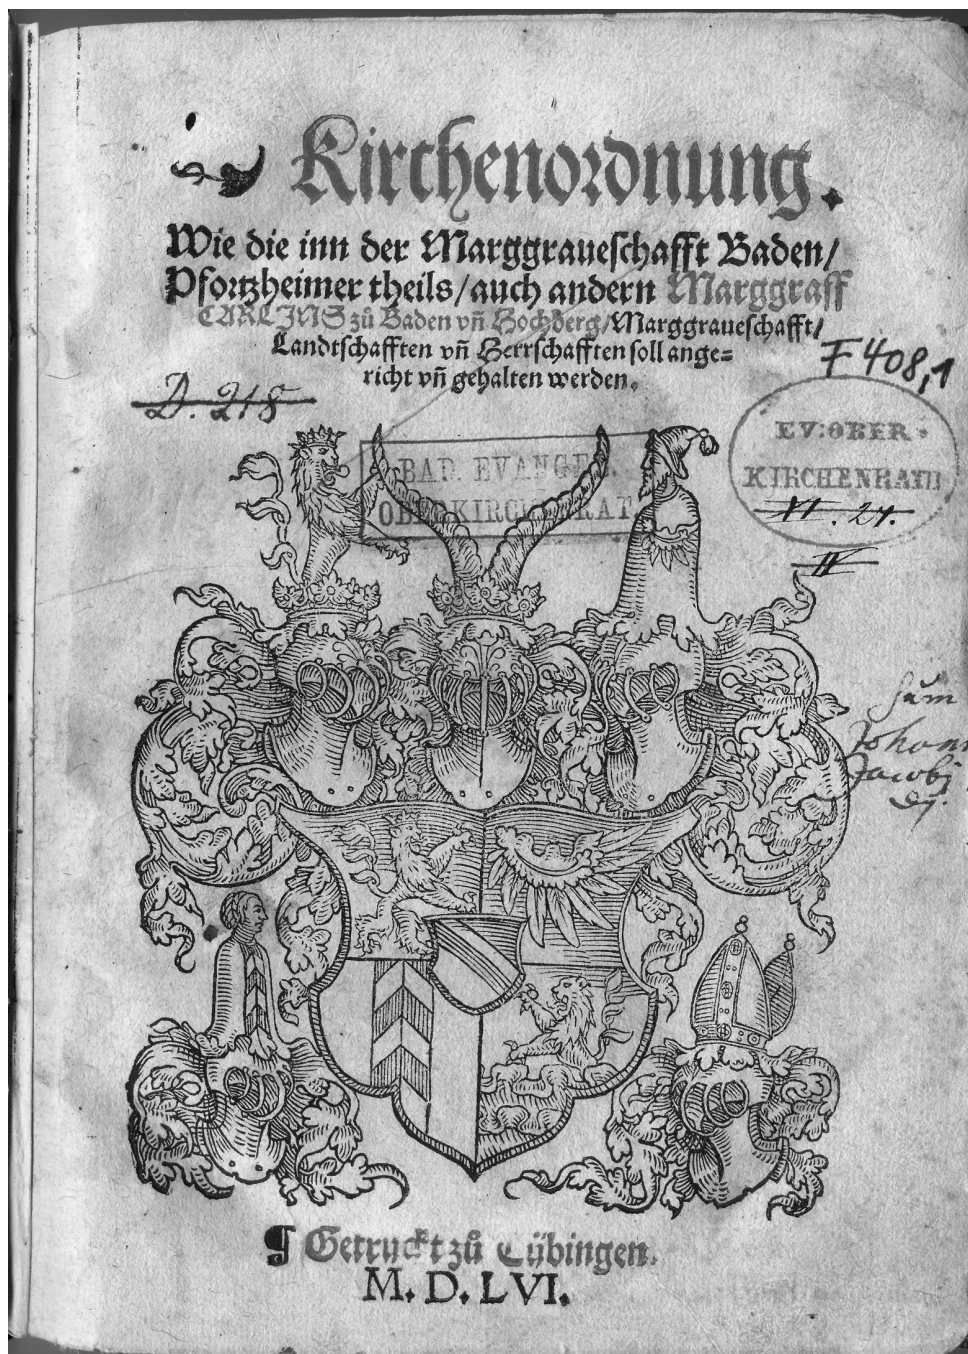 Kirchenordnung.
Wie die inn der Marggraueschafft Baden/
Pfortzheimer theils/auch andern Marggraff
CARLINS zů Baden vñ Hochberg/Marggraueschafft/
Landtschafften vñ Herrschafften soll ange=
richt vñ gehalten werden.
F 408,1
D. 218
EV:OBER
KIRCHENRATH
XI. 24.
IV
BAD. EVANGEL.
OBERKIRCHENRAT
Sum
Johan
Jacobj
¶ Getruckt zů Tübingen.
M. D. LVI.